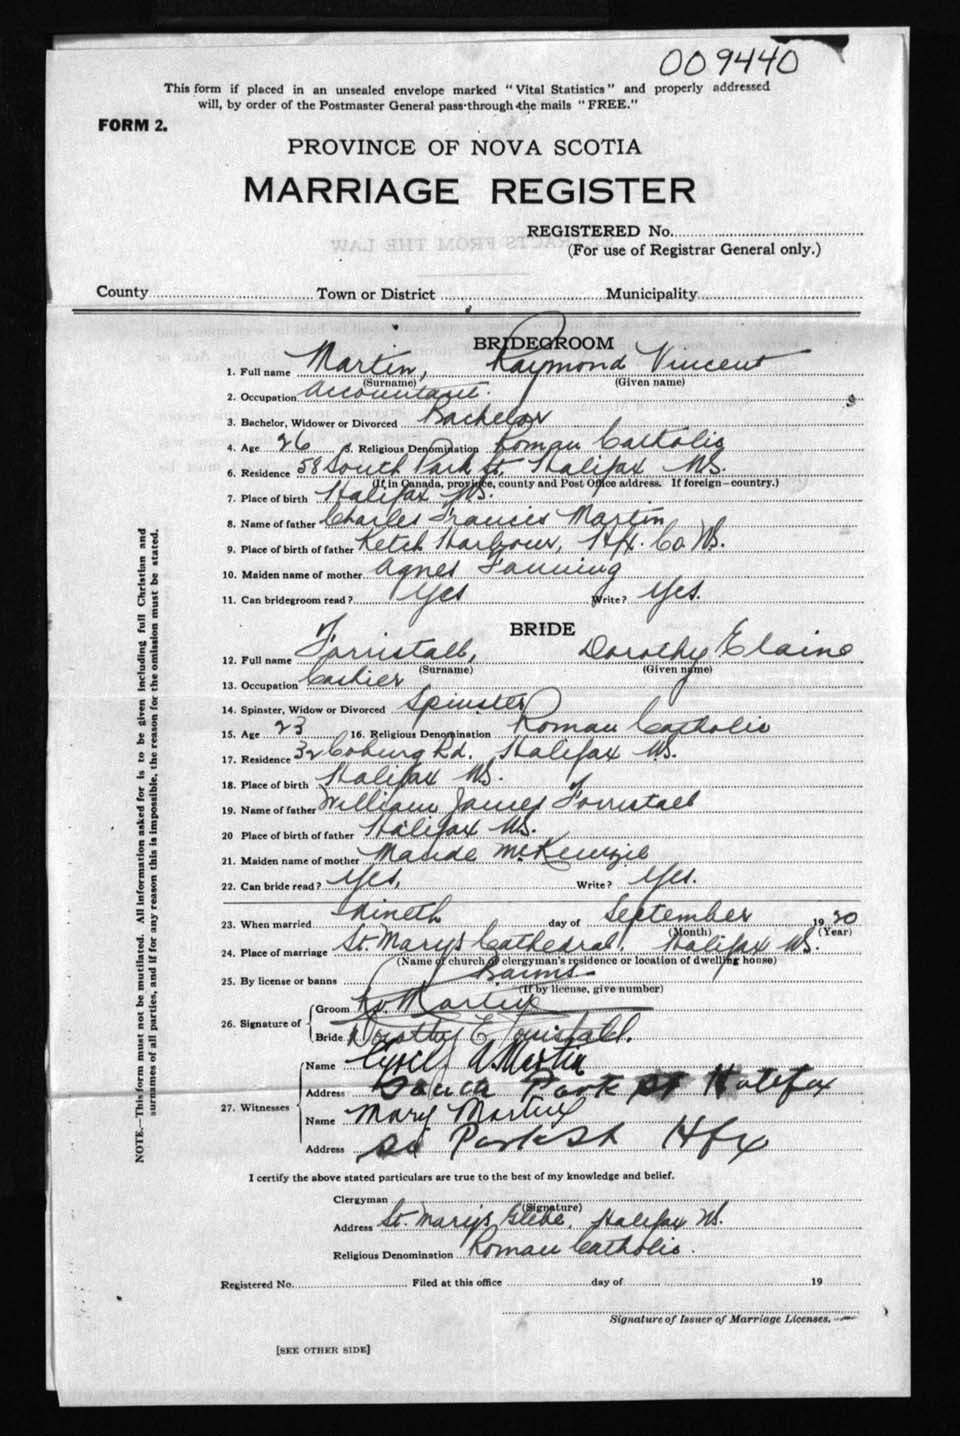 009440
This form if placed in an unsealed envelope marked "Vital Statistics" and properly addressed
will, by order of the Postmaster General pass through the mails "FREE."
FORM 2.
PROVINCE OF NOVA SCOTIA
MARRIAGE REGISTER
REGISTERED No.
(For use of Registrar General only.)
County Town or District Municipality
BRIDEGROOM
1. Full name Martin, Raymond Vincent
(Surname) (Given name)
2. Occupation Accountant.
3. Bachelor, Widower or Divorced Bachelor
4. Age 26 5. Religious Denomination Roman Catholic
6. Residence 58 South Park St. Halifax NS.
(If in Canada, province, county and Post Office address. If foreign—country.)
7. Place of birth Halifax NS.
8. Name of father Charles Francis Martin
9. Place of birth of father Ketch Harbour, Hfx. Co NS.
10. Maiden name of mother Agnes Fanning
11. Can bridegroom read? Yes Write? Yes.
BRIDE
12. Full name Forristall, Dorothy Elaine
(Surname) (Given name)
13. Occupation Cashier
14. Spinster, Widow or Divorced Spinster
15. Age 23 16. Religious Denomination Roman Catholic
17. Residence 32 Coburg Rd. Halifax NS.
18. Place of birth Halifax NS.
19. Name of father William James Forristall
20 Place of birth of father Halifax NS.
21. Maiden name of mother Maude McKenzie
22. Can bride read? Yes, Write? Yes.
23. When married Nineth day of September 1930
(Month) (Year)
24. Place of marriage St. Mary's Cathedral, Halifax NS.
(Name of church or clergyman's residence or location of dwelling house)
25. By license or banns Banns
(If by license, give number)
26. Signature of Groom R.V. Martin
Bride Dorothy E Forristall.
27. Witnesses Name Cyril A Martin
Address South Park St Halifax
Name Mary Martin
Address So Park St Hfx
I certify the above stated particulars are true to the best of my knowledge and belief.
Clergyman
(Signature)
Address St. Mary's Glebe, Halifax NS.
Religious Denomination Roman Catholic.
Registered No. Filed at this office day of 19
Signature of Issuer of Marriage Licenses.
[SEE OTHER SIDE]
NOTE.—This form must not be mutilated. All information asked for is to be given including full Christian and
surnames of all parties, and if for any reason this is impossible, the reason for the omission must be stated.